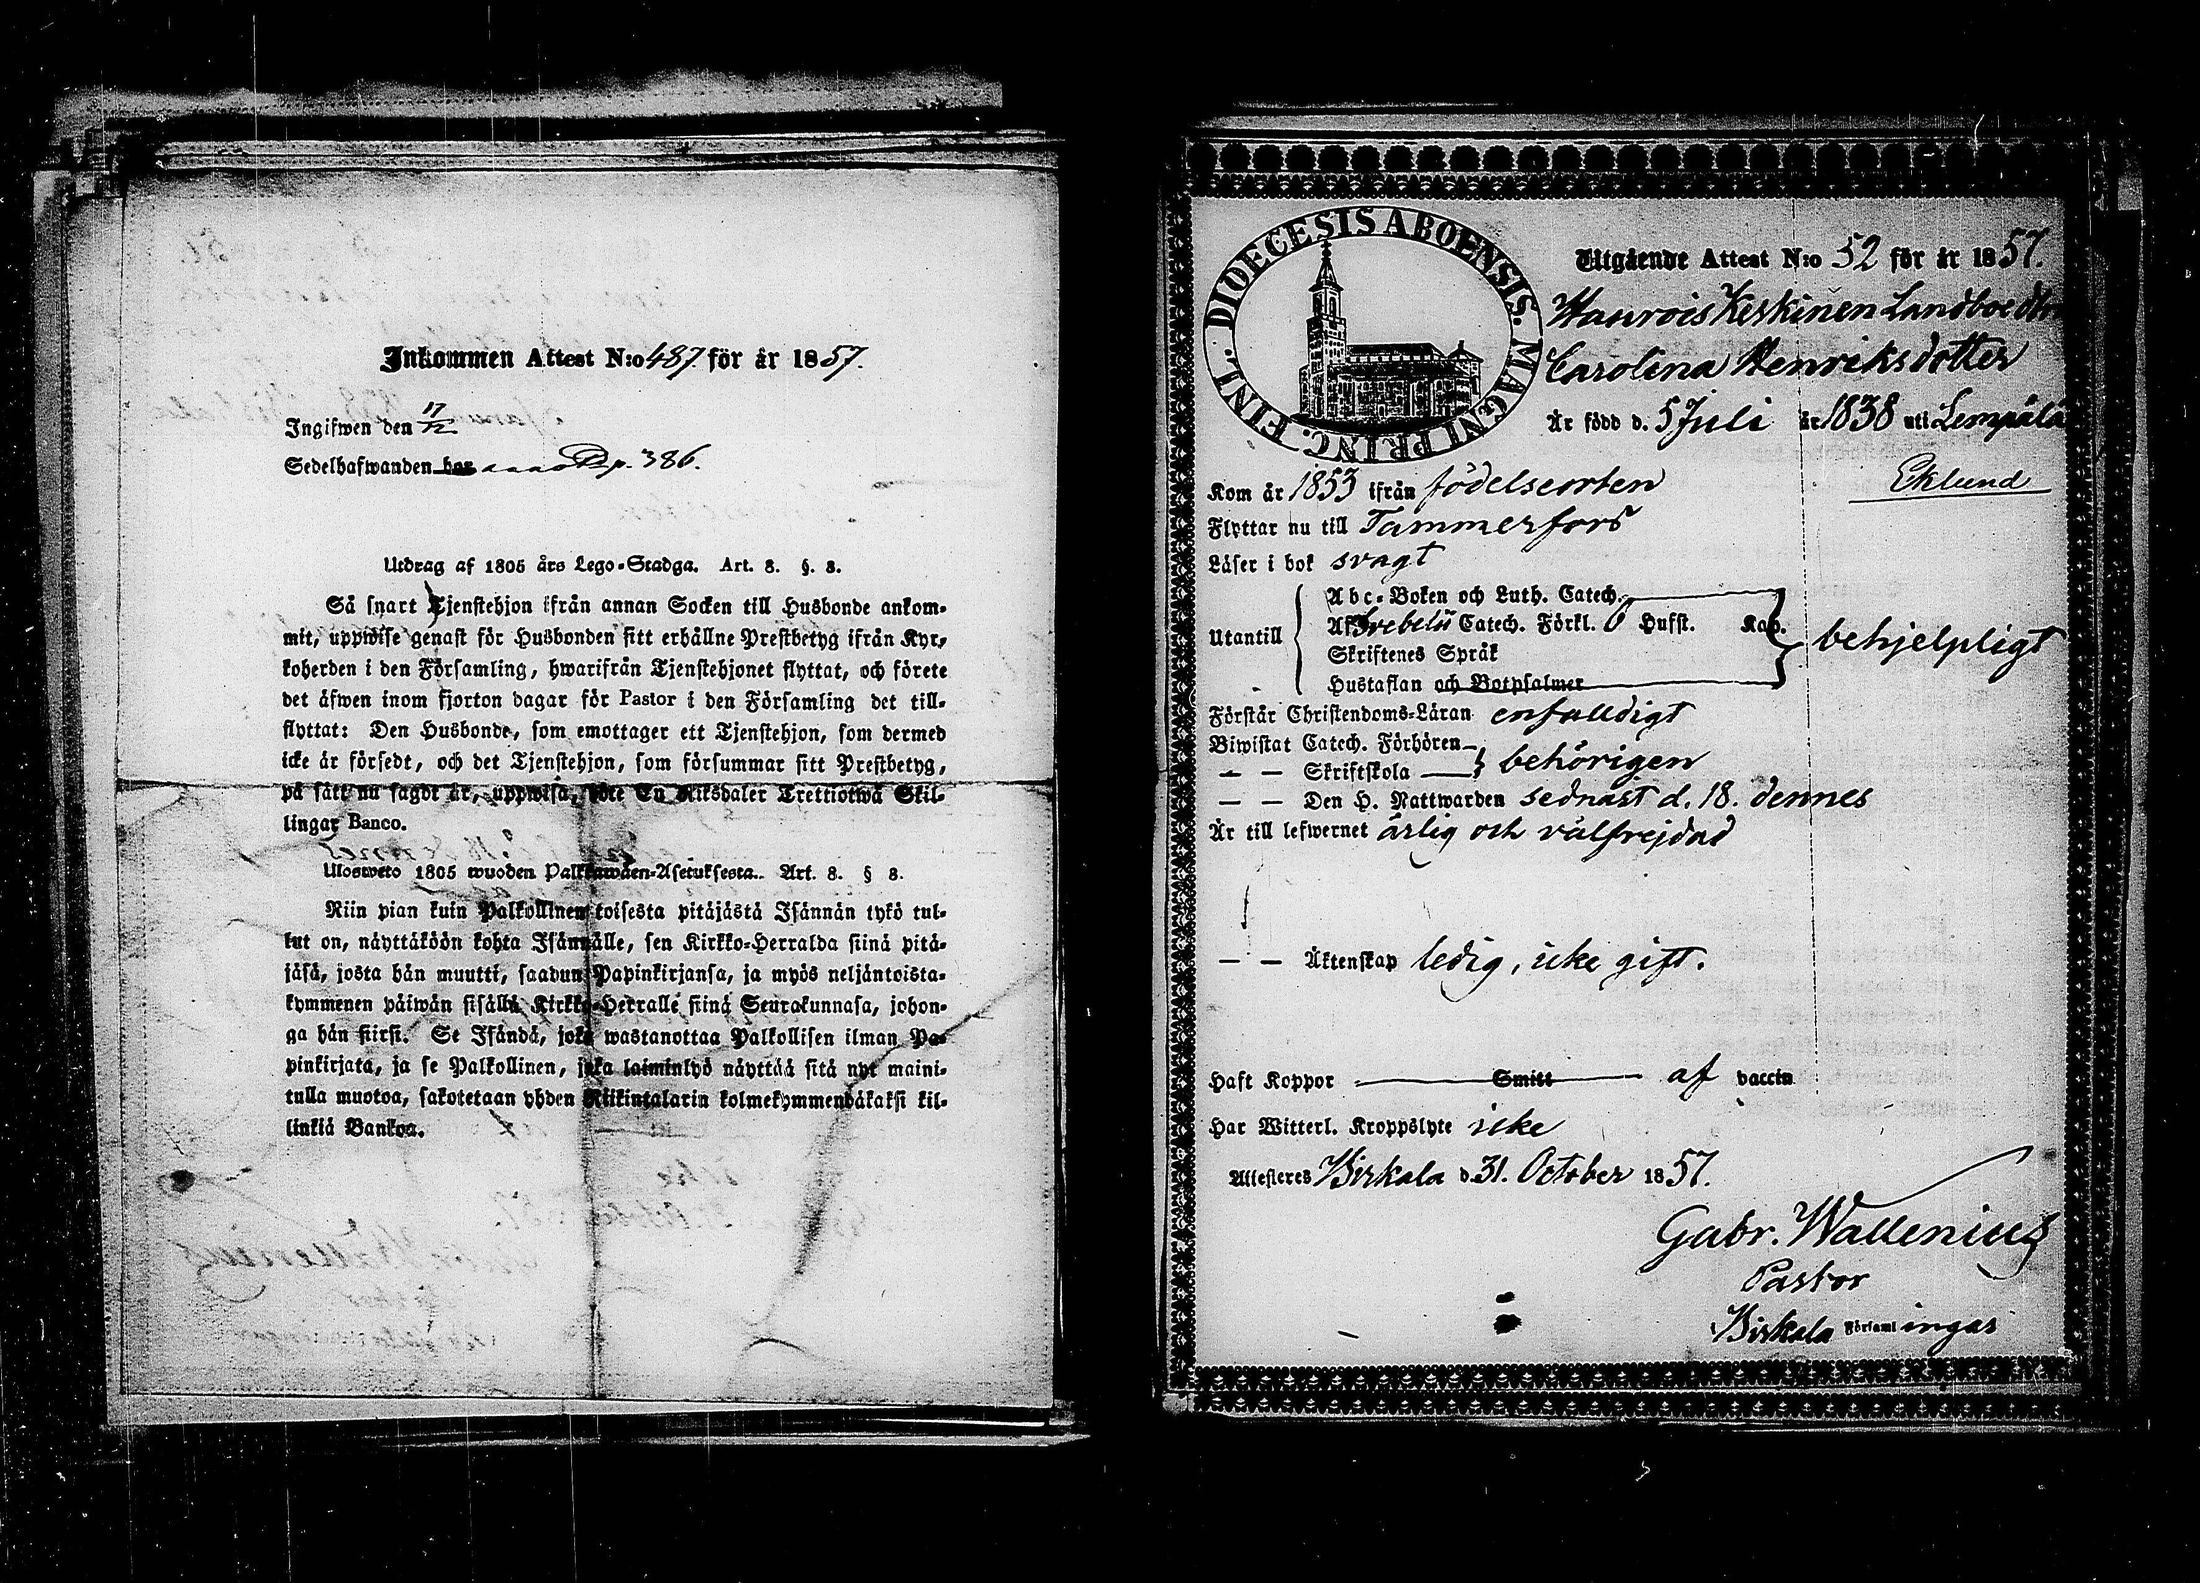 Inkommen Attest N:o 487. för år 1857.
Ingifwen den 17/12
Sedelhafwanden har p. 386.
Utdrag af 1805 års Lego-Stadga. Art. 8. §. 8.
Så snart Tjenstehjon ifrån annan Socken till Husbonde ankom-
mit, uppwise genast för Husbonden sitt erhållne Prestbetyg ifrån Kyr-
koherden i den Församling, hwarifrån Tjenstehjonet flyttat, och förete
det äfwen inom fjorton dagar för Pastor i den Församling det till-
flyttat: Den Husbonde, som emottager ett Tjenstehjon, som dermed
icke är försedt, och det Tjenstehjon, som försummar sitt Prestbetyg,
på sätt nu sagdt är, uppwisa, böte En Riksdaler Trettiotwå Skil-
lingar Banco.
Ulosweto 1805 wuoden Palkkawäen-Asetuksesta. Art. 8. § 8.
Niin pian kuin Palkollinen toisesta pitäjästä Isännän tykö tul-
lut on, näyttäköön kohta Isännälle, sen Kirkko-Herralda siinä pitä-
jäsä, josta hän muutti, saadun Papinkirjansa, ja myös neljäntoista-
kymmenen päiwän sisällä Kirkko-Herralle siinä Seurakunnasa, johon-
ga hän siirsi. Se Isändä, joka wastanottaa Palkollisen ilman Pa-
pinkirjata, ja se Palkollinen, joka laiminlyö näyttää sitä nyt maini-
tulla muotoa, sakotetaan yhden Riikintalarin kolmekymmendäkaksi kil-
linkiä Bankoa.
DIOECESIS ABOENSIS. MAGNI PRINC. FINL.
Utgående Attest N:o 52 för år 1857.
Haurois Keskinen Landboedtr
Carolina Henriksdotter
Är född d. 5 Juli år 1838 uti Lempälä
Eklund
Kom år 1853 ifrån födelseorten
Flyttar nu till Tammerfors
Läser i bok svagt
Utantill
Abc-Boken och Luth. Catech.
Af Svebelii Catech. Förkl. 6 Hufst. Kap.
Skriftenes Språk
Hustaflan och Botpsalmer
behjelpligt
Förstår Christendoms-Läran enfalldigt
Biwistat Catech. Förhören
— — Skriftskola behörigen
— — Den H. Nattwarden sednast d. 18. dennes
Är till lefwernet ärlig och välfrejdad
— — Äktenskap ledig, icke gift.
Haft Koppor Smitt af vaccin
Har Witterl. Kroppslyte icke
Attesteres Birkala d. 31. October 1857.
Gabr. Wallenius
Pastor
Birkala Församlingar